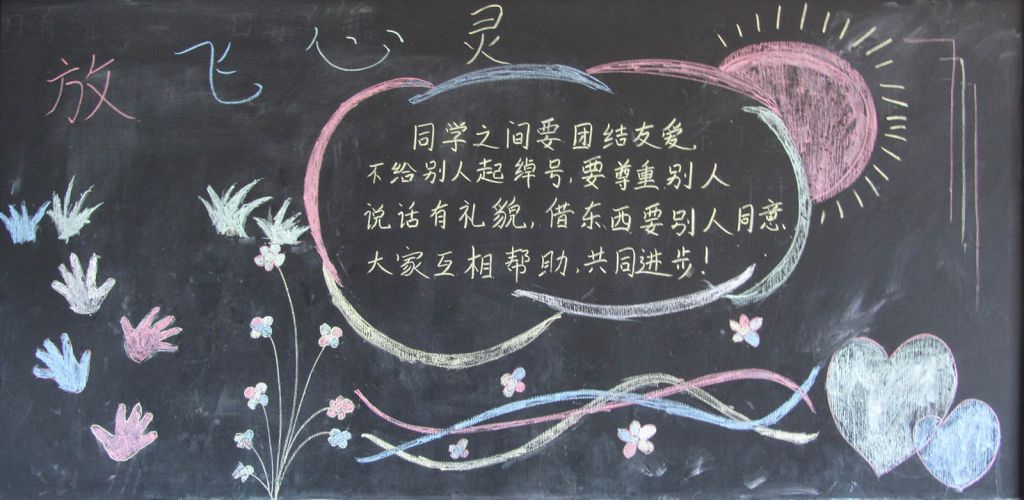 放飞心灵
同学之间要团结友爱
不给别人起绰号,要尊重别人
说话有礼貌,借东西要别人同意.
大家互相帮助.共同进步!